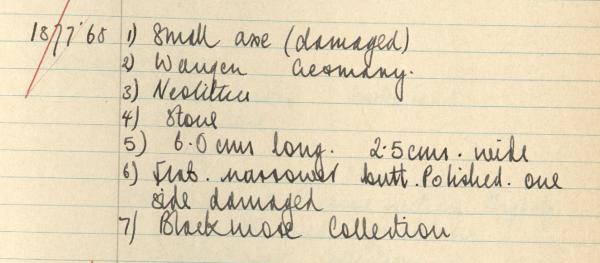 1877.68 1) Small axe (damaged)
2) Wangen Germany.
3) Neolithic
4) Stone
5) 6.0 cms long. 2.5 cms. wide
6) Flat. narrower butt. Polished. one
side damaged
7) Blackmore Collection